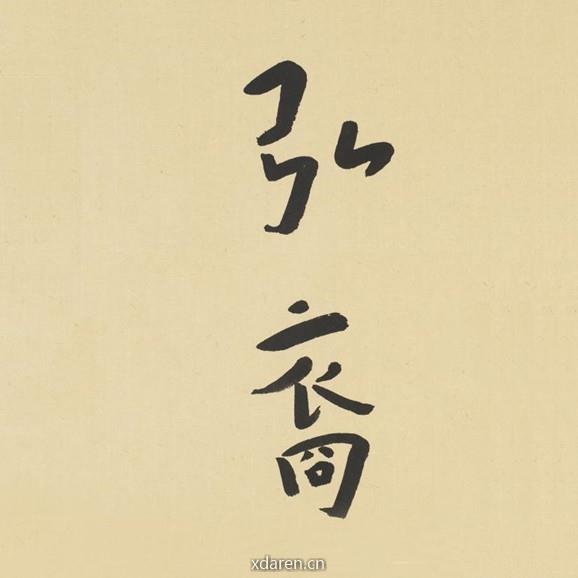 弘
裔
xdaren.cn